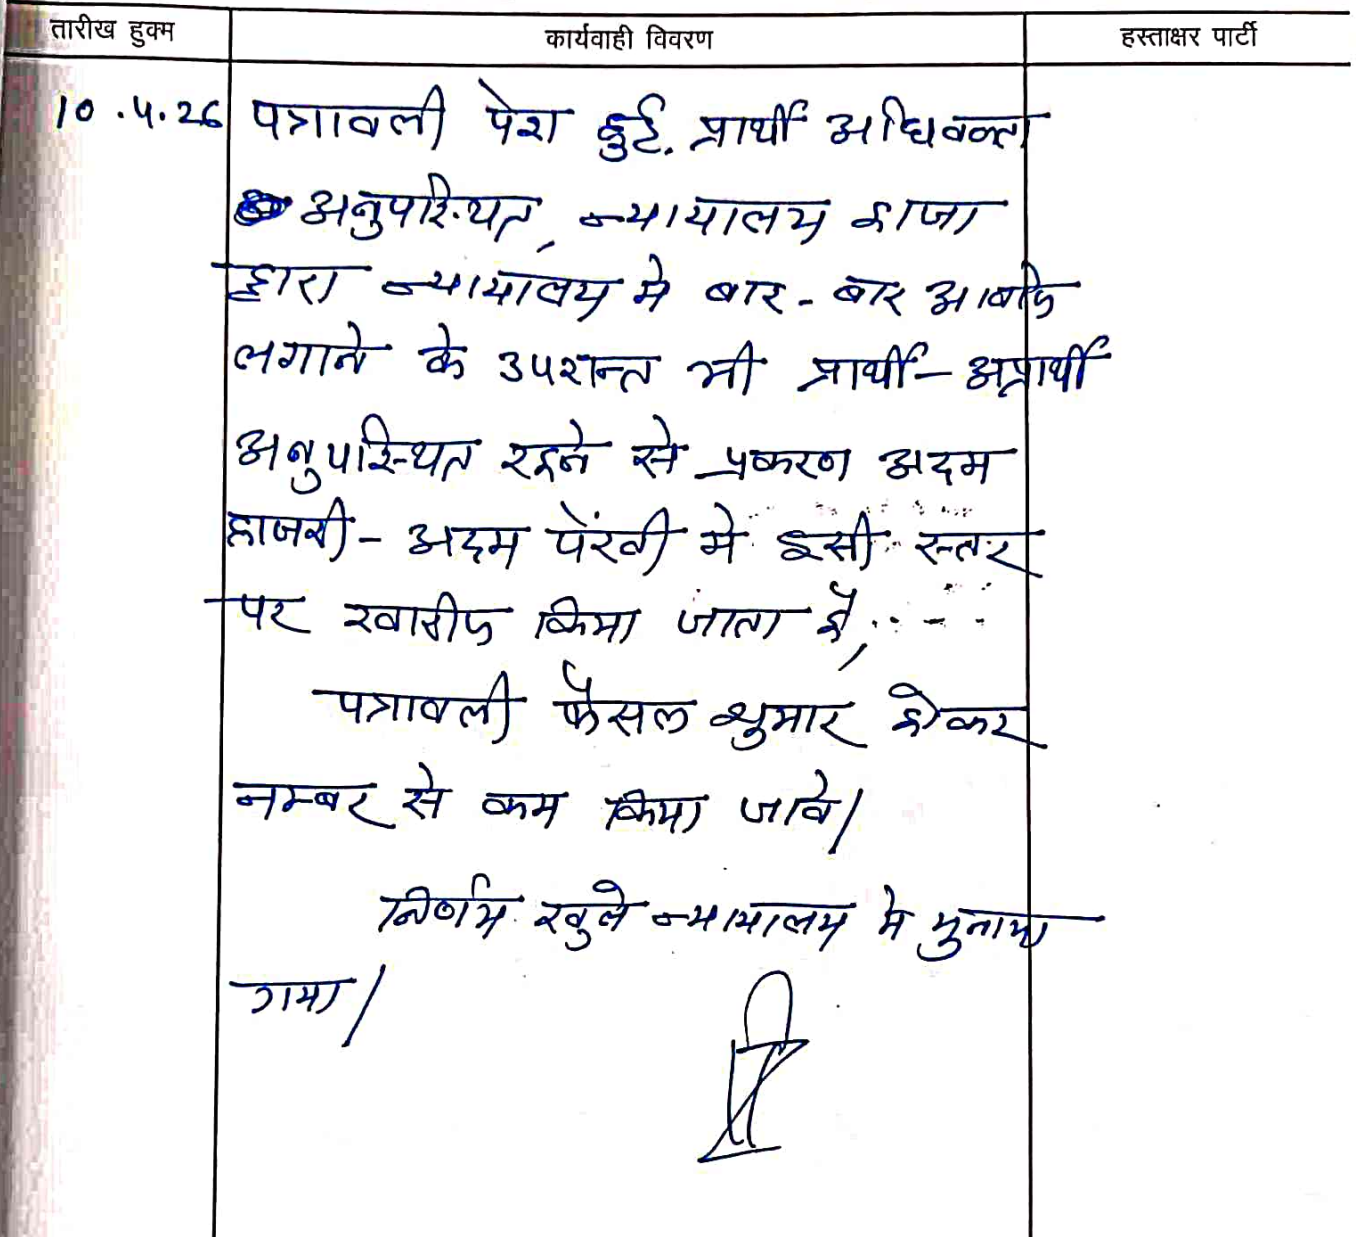 तारीख हुक्म
कार्यवाही विवरण
हस्ताक्षर पार्टी
10.4.26 पत्रावली पेश हुई. प्रार्थी अधिवक्ता
अनुपस्थित, न्यायालय हाजा
द्वारा न्यायालय मे बार-बार आवाज
लगाने के उपरान्त भी प्रार्थी-अप्रार्थी
अनुपस्थित रहने से प्रकरण अदम
हाजरी-अदम पैरवी मे इसी स्तर
पर खारीज किया जाता है,
पत्रावली फैसल शुमार होकर
नम्बर से कम किया जावे।
निर्णय खुले न्यायालय मे सुनाया
गया।